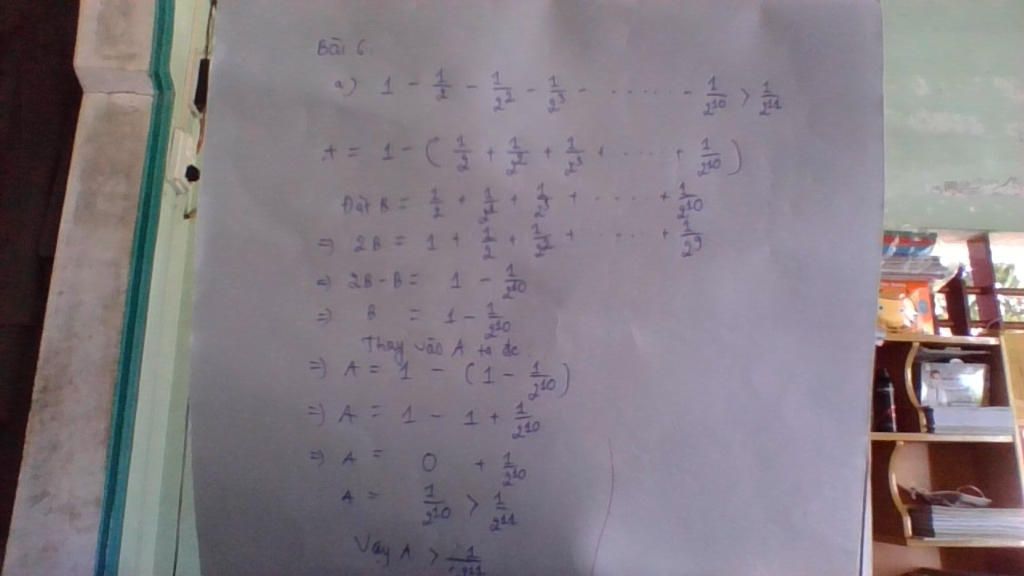 Bài 6.
a) 1 - 1/2 - 1/2² - 1/2³ - ...... - 1/2¹⁰ > 1/2¹¹
A = 1 - ( 1/2 + 1/2² + 1/2³ + ..... + 1/2¹⁰ )
Đặt B = 1/2 + 1/2² + 1/2³ + ..... + 1/2¹⁰
=> 2B = 1 + 1/2 + 1/2² + ..... + 1/2⁹
=> 2B - B = 1 - 1/2¹⁰
=> B = 1 - 1/2¹⁰
Thay vào A ta đc
=> A = 1 - ( 1 - 1/2¹⁰ )
=> A = 1 - 1 + 1/2¹⁰
=> A = 0 + 1/2¹⁰
A = 1/2¹⁰ > 1/2¹¹
Vậy A > 1/2¹¹